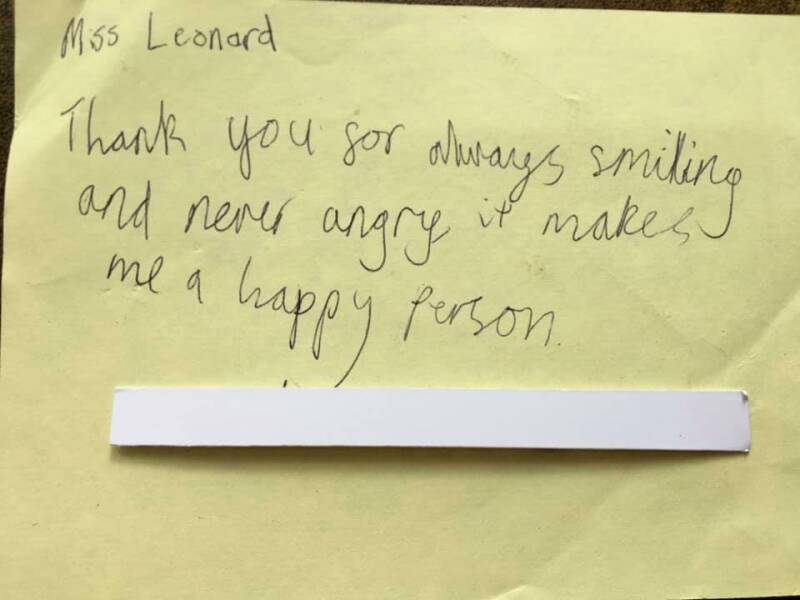 Miss Leonard
Thank you for always smiling
and never angry it makes
me a happy person.